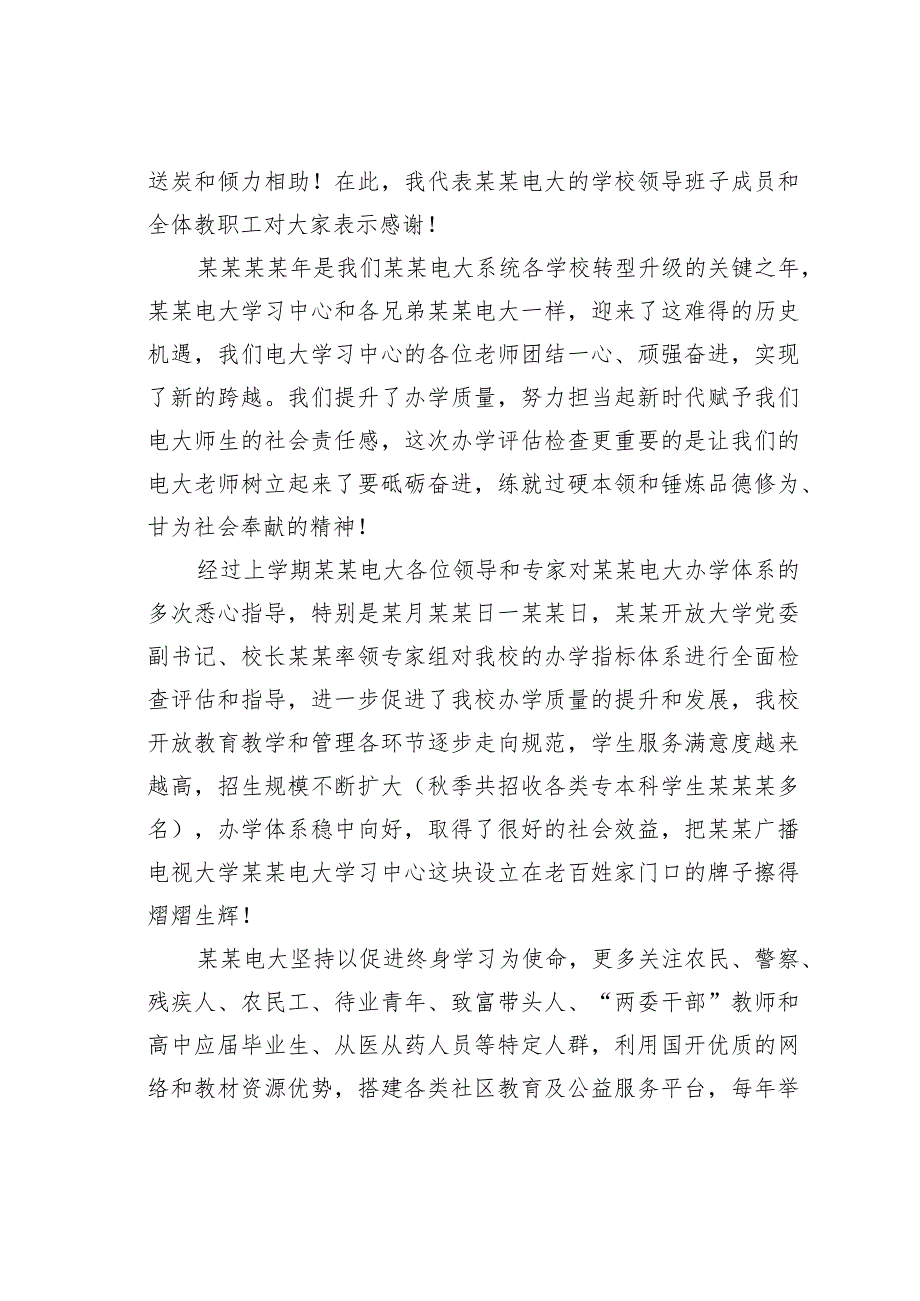 送炭和倾力相助！在此，我代表某某电大的学校领导班子成员和
全体教职工对大家表示感谢！
某某某某年是我们某某电大系统各学校转型升级的关键之年，
某某电大学习中心和各兄弟某某电大一样，迎来了这难得的历史
机遇，我们电大学习中心的各位老师团结一心、顽强奋进，实现
了新的跨越。我们提升了办学质量，努力担当起新时代赋予我们
电大师生的社会责任感，这次办学评估检查更重要的是让我们的
电大老师树立起来了要砥砺奋进，练就过硬本领和锤炼品德修为、
甘为社会奉献的精神！
经过上学期某某电大各位领导和专家对某某电大办学体系的
多次悉心指导，特别是某月某某日一某某日，某某开放大学党委
副书记、校长某某率领专家组对我校的办学指标体系进行全面检
查评估和指导，进一步促进了我校办学质量的提升和发展，我校
开放教育教学和管理各环节逐步走向规范，学生服务满意度越来
越高，招生规模不断扩大（秋季共招收各类专本科学生某某某多
名），办学体系稳中向好，取得了很好的社会效益，把某某广播
电视大学某某电大学习中心这块设立在老百姓家门口的牌子擦得
熠熠生辉！
某某电大坚持以促进终身学习为使命，更多关注农民、警察、
残疾人、农民工、待业青年、致富带头人、“两委干部”教师和
高中应届毕业生、从医从药人员等特定人群，利用国开优质的网
络和教材资源优势，搭建各类社区教育及公益服务平台，每年举